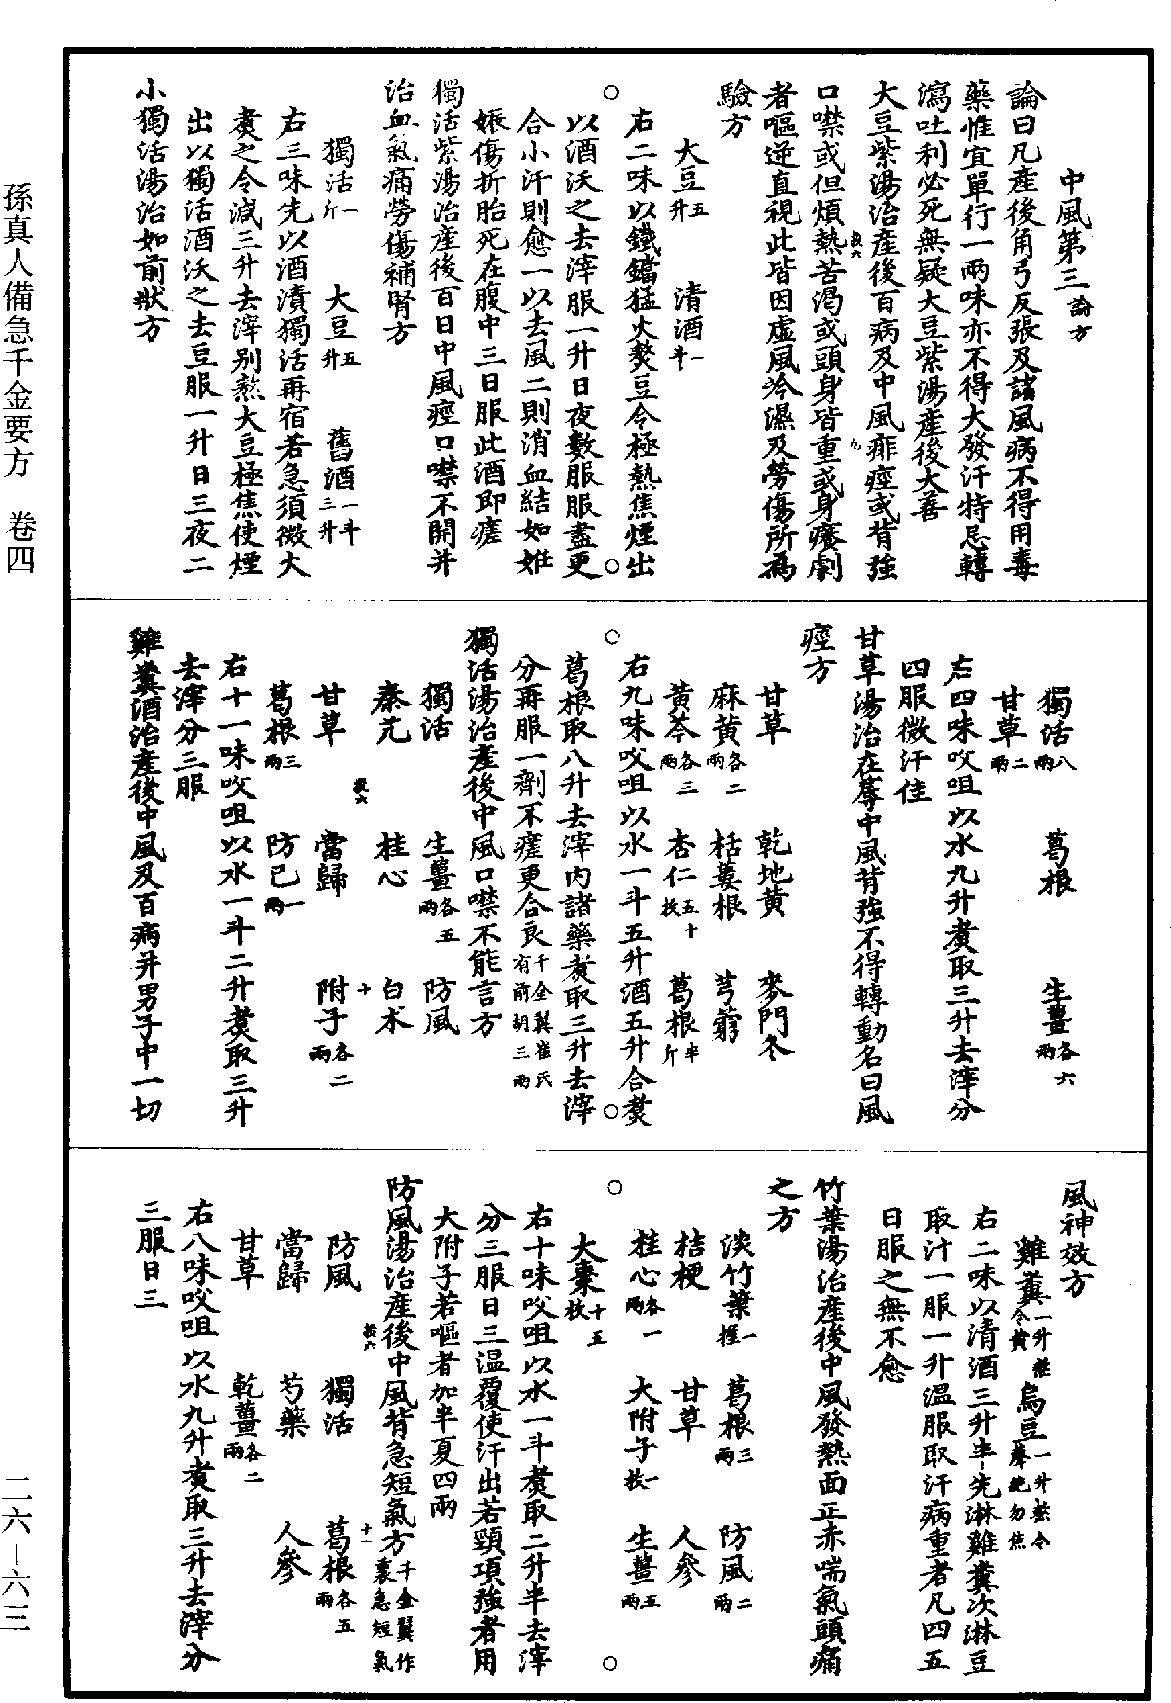 中風第三論方
論曰凡產後角弓反張及諸風病不得用毒
藥惟宜單行一兩味亦不得大發汗特忌轉
瀉吐利必死無疑大豆紫湯產後大善
大豆紫湯治產後百病及中風痱痙或背強
口噤或但煩熱苦渴或頭身皆重或身癢劇
者嘔逆直視此皆因虛風冷濕及勞傷所為
驗方
大豆五升 清酒一斗
右二味以鐵鐺猛火熬豆令極熱焦煙出
以酒沃之去滓服一升日夜數服服盡更
合小汗則愈一以去風二則消血結如妊
娠傷折胎死在腹中三日服此酒即瘥
獨活紫湯治產後百日中風痙口噤不開并
治血氣痛勞傷補腎方
獨活一斤 大豆五升 舊酒一斗三升
右三味先以酒漬獨活再宿若急須微火
煑之令減三升去滓別熬大豆極焦使煙
出以獨活酒沃之去豆服一升日三夜二
小獨活湯治如前狀方
獨活八兩 葛根 生薑各六兩
甘草二兩
右四味㕮咀以水九升煑取三升去滓分
四服微汗佳
甘草湯治在蓐中風背強不得轉動名曰風
痙方
甘草 乾地黃 麥門冬
麻黃各二兩 栝蔞根 芎藭
黃芩各三兩 杏仁五十枚 葛根半斤
右九味㕮咀以水一斗五升酒五升合煑
葛根取八升去滓內諸藥煑取三升去滓
分再服一劑不瘥更合良千金翼崔氏有前胡三兩
獨活湯治產後中風口噤不能言方
獨活 生薑各五兩 防風
秦艽 桂心 白朮
甘草 當歸 附子各二兩
葛根三兩 防己一兩
右十一味㕮咀以水一斗二升煑取三升
去滓分三服
雞糞酒治產後中風及百病并男子中一切
風神效方
雞糞一升熬令黃 烏豆一升熬令聲絕勿焦
右二味以清酒三升半先淋雞糞次淋豆
取汁一服一升溫服取汗病重者凡四五
日服之無不愈
竹葉湯治產後中風發熱面正赤喘氣頭痛
之方
淡竹葉一握 葛根三兩 防風二兩
桔梗 甘草 人參
桂心各一兩 大附子一枚 生薑五兩
大棗十五枚
右十味㕮咀以水一斗煑取二升半去滓
分三服日三溫覆使汗出若頸項強者用
大附子若嘔者加半夏四兩
防風湯治產後中風背急短氣方千金翼作裏急短氣
防風 獨活 葛根各五兩
當歸 芍藥 人參
甘草 乾薑各二兩
右八味㕮咀以水九升煑取三升去滓分
三服日三
孫真人備急千金要方 卷四
二六—六三